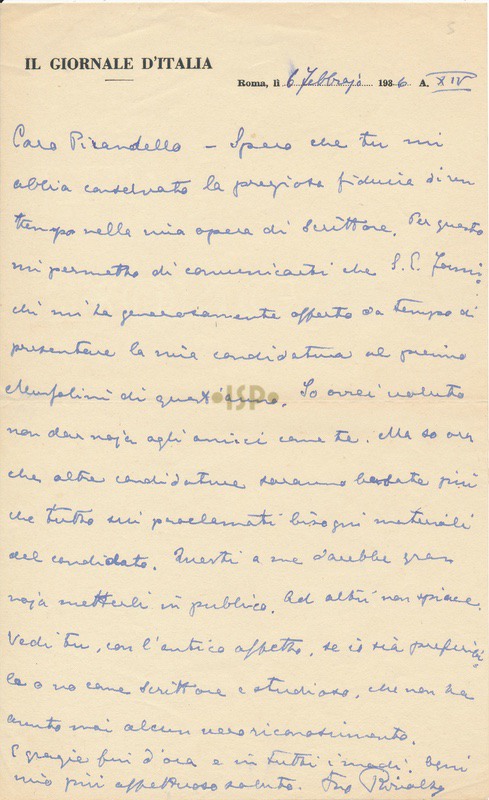 IL GIORNALE D'ITALIA
Roma, lì 6 febbrajo 1936 A. XIV
Caro Pirandello – Spero che tu mi
abbia conservato la preziosa fiducia di un
tempo nella mia opera di scrittore. Per questo
mi permetto di comunicarti che S. E. Formi-
chi mi ha generosamente offerto da tempo di
presentare la mia candidatura al premio
Mussolini di quest'anno. Io avrei voluto
non dar noja agli amici come te. Ma so ora
che altre candidature saranno basate più
che tutto sui proclamati bisogni materiali
del candidato. Questi a me darebbe gran
noja metterli in pubblico. Ad altri non spiace.
Vedi tu, con l'antico affetto, se io sia preferibi-
le o no come scrittore e studioso, che non ha
avuto mai alcun vero riconoscimento.
E grazie fin d'ora e in tutti i modi. Ogni
mio più affettuoso saluto. Tuo
•ISP•